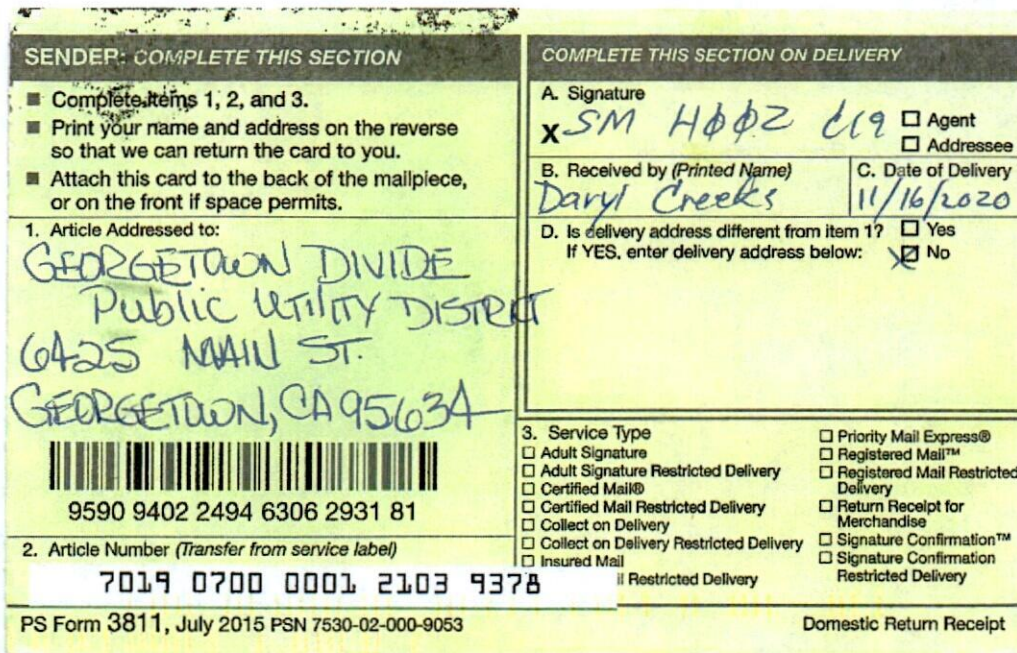 SENDER: COMPLETE THIS SECTION
■ Complete items 1, 2, and 3.
■ Print your name and address on the reverse
so that we can return the card to you.
■ Attach this card to the back of the mailpiece,
or on the front if space permits.
1. Article Addressed to:
GEORGETOWN DIVIDE
Public UTILITY DISTRICT
6425 MAIN ST.
GEORGETOWN, CA 95634
9590 9402 2494 6306 2931 81
2. Article Number (Transfer from service label)
7019 0700 0001 2103 9378
PS Form 3811, July 2015 PSN 7530-02-000-9053
COMPLETE THIS SECTION ON DELIVERY
A. Signature
X SM H002 C19
☐ Agent
☐ Addressee
B. Received by (Printed Name)
Daryl Creeks
C. Date of Delivery
11/16/2020
D. Is delivery address different from item 1? ☐ Yes
If YES, enter delivery address below: ☒ No
3. Service Type
☐ Adult Signature
☐ Adult Signature Restricted Delivery
☐ Certified Mail®
☐ Certified Mail Restricted Delivery
☐ Collect on Delivery
☐ Collect on Delivery Restricted Delivery
☐ Insured Mail
il Restricted Delivery
☐ Priority Mail Express®
☐ Registered Mail™
☐ Registered Mail Restricted
Delivery
☐ Return Receipt for
Merchandise
☐ Signature Confirmation™
☐ Signature Confirmation
Restricted Delivery
Domestic Return Receipt